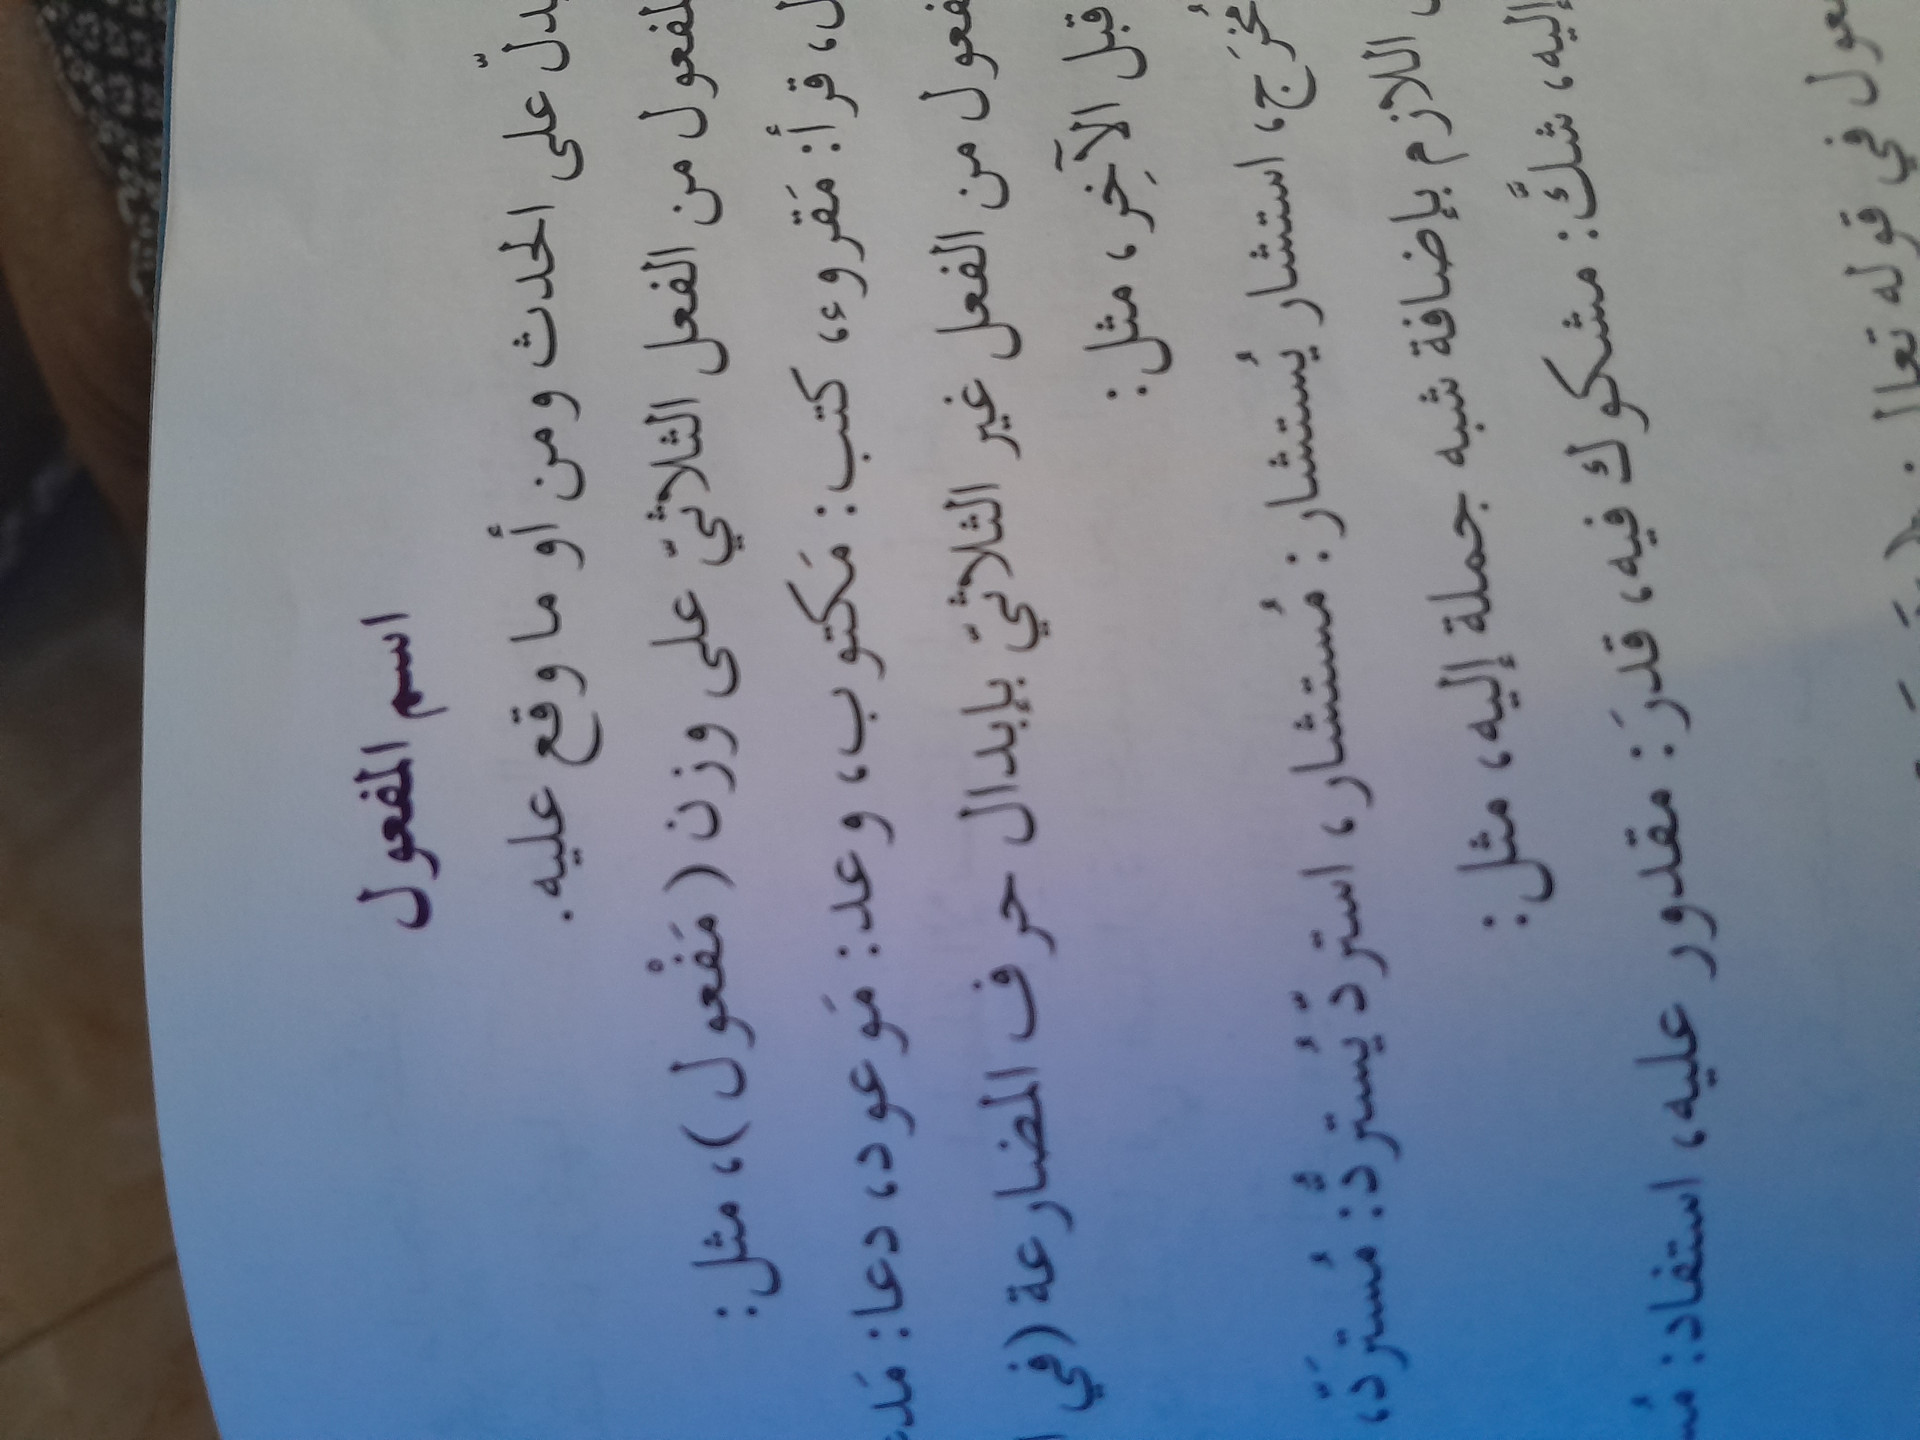 اسم المفعول
يدلّ على الحدث ومن أو ما وقع عليه.
المفعول من الفعل الثلاثيّ على وزن (مَفْعول)، مثل:
قرأ: مَقروء، كتب: مَكتوب، وعد: مَوعود، دعا:
من الفعل غير الثلاثيّ بإبدال حرف المضارعة (في
قبل الآخِر، مثل:
مُخرَج، استشار يُستشار: مُستشار، استردّ يُستردّ: مُستردّ،
اللازم بإضافة شبه جملة إليه، مثل:
إليه، شكَّ: مشكوك فيه، قدرَ: مقدور عليه، استفاد:
في قوله تعالى: